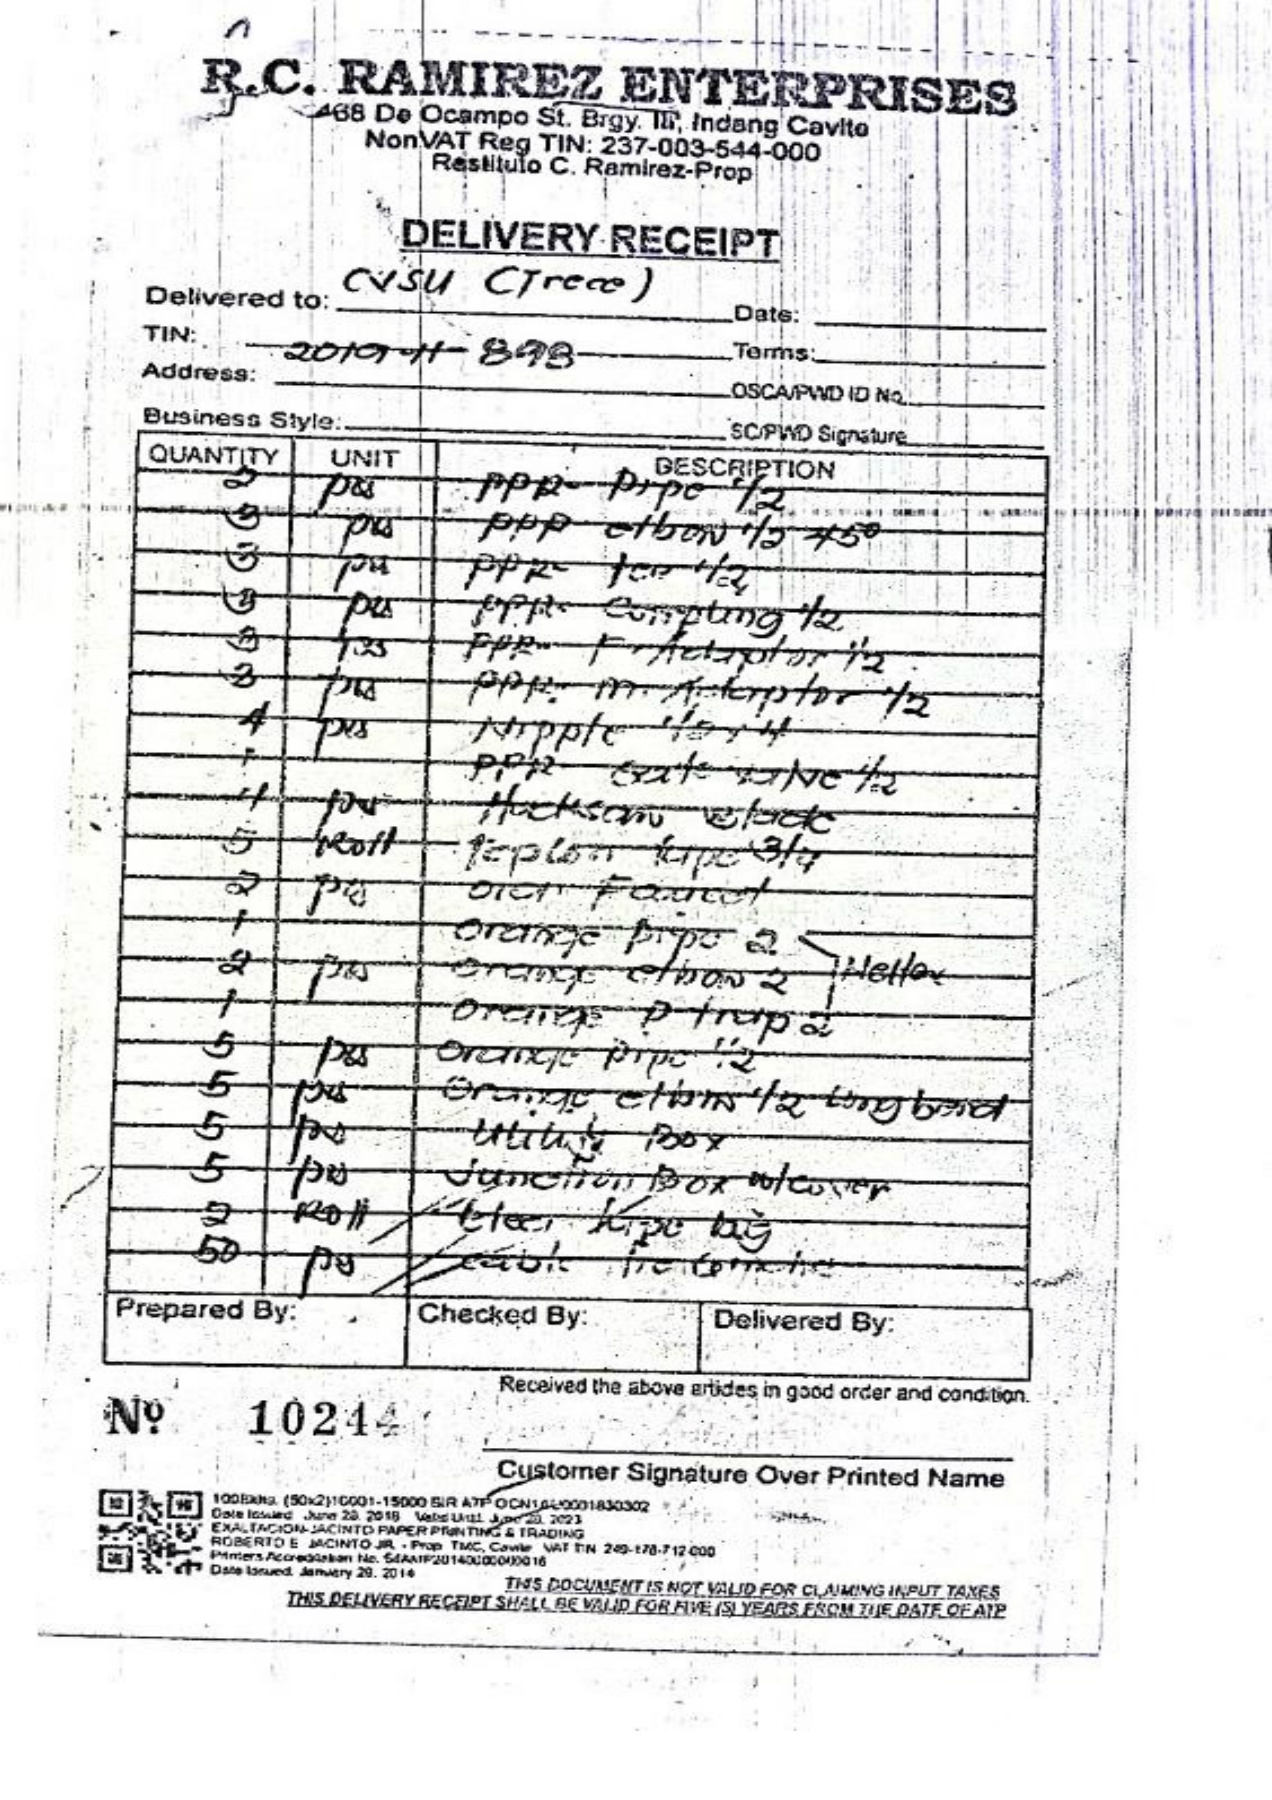 R.C. RAMIREZ ENTERPRISES
468 De Ocampo St. Brgy. III, Indang Cavite
NonVAT Reg TIN: 237-003-544-000
Restituto C. Ramirez-Prop
DELIVERY RECEIPT
Delivered to: CVSU (Trece) Date:
TIN: 2019-11-893 Terms:
Address: OSCA/PWD ID No.
Business Style: SC/PWD Signature
QUANTITY UNIT DESCRIPTION
2 pcs PPR- Pipe 1/2
3 pcs PPR elbow 1/2 45°
3 pcs PPR- tee 1/2
3 pcs PPR- Coupling 1/2
3 pcs PPR- F. Adaptor 1/2
3 pcs PPR- M. Adaptor 1/2
4 pcs Nipple 1/2 x 4
1 PPR- Gate valve 1/2
4 pcs Hacksaw blade
5 Roll teplon tape 3/4
2 pcs Faucet
1 Orange pipe 2
2 pcs Orange elbow 2
1 Orange P-trap 2
5 pcs Orange pipe 1/2
5 pcs Orange elbow 1/2 long bend
5 pcs Utility Box
5 pcs Junction Box w/cover
2 Roll tape big
50 pcs cable tie
Prepared By: Checked By: Delivered By:
Received the above articles in good order and condition.
Nº 10244
Customer Signature Over Printed Name
100Bklts. (50x2)10001-15000 BIR ATP
Date Issued June 28, 2018 Valid Until June 28, 2023
EXALTACION-JACINTO PAPER PRINTING & TRADING
ROBERTO E. JACINTO JR. - Prop. TMC, Cavite VAT TIN 249-178-712-000
Printers Accreditation No.
Date Issued January 29, 2014
THIS DOCUMENT IS NOT VALID FOR CLAIMING INPUT TAXES
THIS DELIVERY RECEIPT SHALL BE VALID FOR FIVE (5) YEARS FROM THE DATE OF ATP